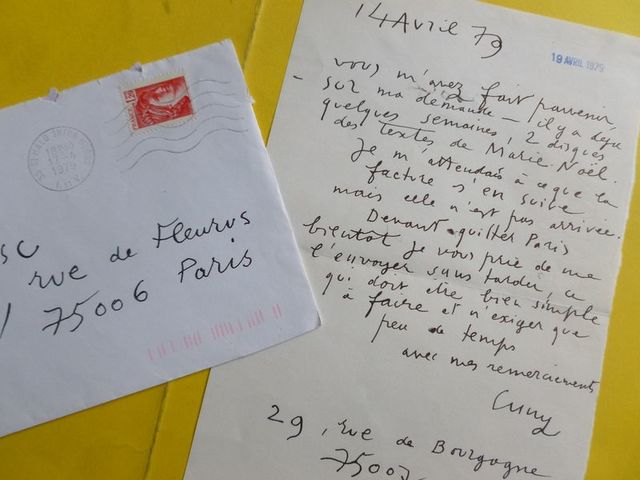 14 Avril 79
19 AVRIL 1979
vous m'avez fait parvenir
- sur ma demande - il y a déjà
quelques semaines, 2 disques
des textes de Marie-Noël
Je m'attendais à ce que la
facture s'en suive
mais elle n'est pas arrivée.
Devant quitter Paris
bientôt je vous prie de me
l'envoyer sans tarder, ce
qui doit être bien simple
à faire et n'exiger que
peu de temps
avec mes remerciements
Cuny
29, rue de Bourgogne
75007
FRANCE 1,20
1979
SC
rue de Fleurus
75006 Paris